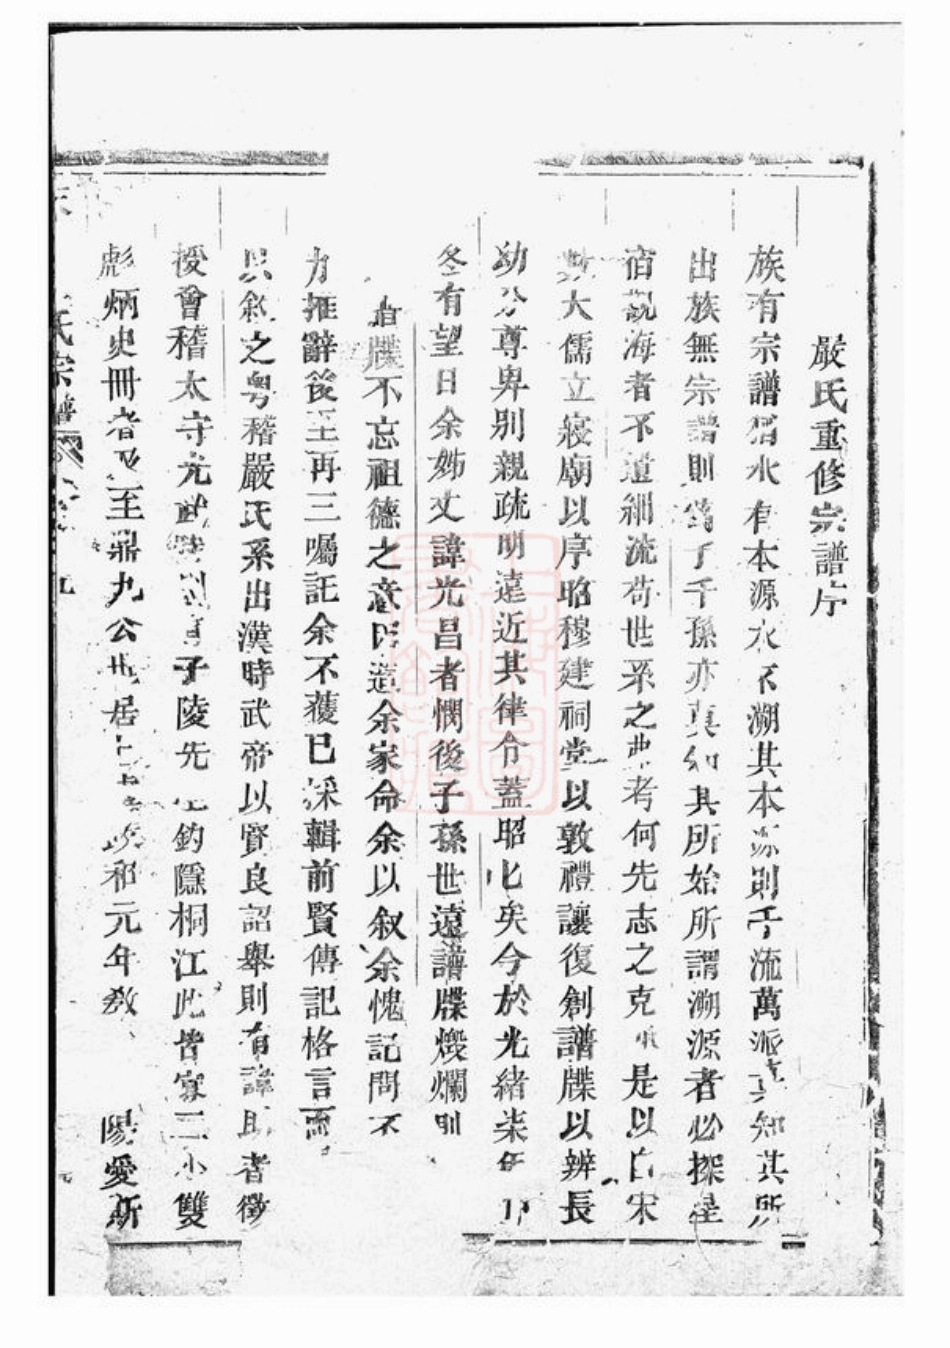 嚴氏重修宗譜序
族有宗譜猶水有本源水不溯其本源則千流萬派莫知其所
出族無宗譜則萬子千孫亦莫知其所始所謂溯源者必探星
宿觀海者不遺細流苟世系之典考何先志之克承是以自宋
大儒立寢廟以序昭穆建祠堂以敦禮讓復創譜牒以辨長
幼分尊卑別親疏明遠近其律令蓋昭昭矣今於光緒柒年
冬有望日余姊丈諱光昌者憫後子孫世遠譜牒燬爛則
牒不忘祖德之意 造余家命余以叙余愧記問不
力推辭後至再三囑託余不獲已採輯前賢傳記格言而
叙之粤稽嚴氏系出漢時武帝以賢良詔舉則有諱助者徵
授會稽太守光武時則有子陵先生釣隱桐江此皆寥二小雙
彪炳史冊者及至鼎九公 居 政和元年教 陽愛新
氏宗譜